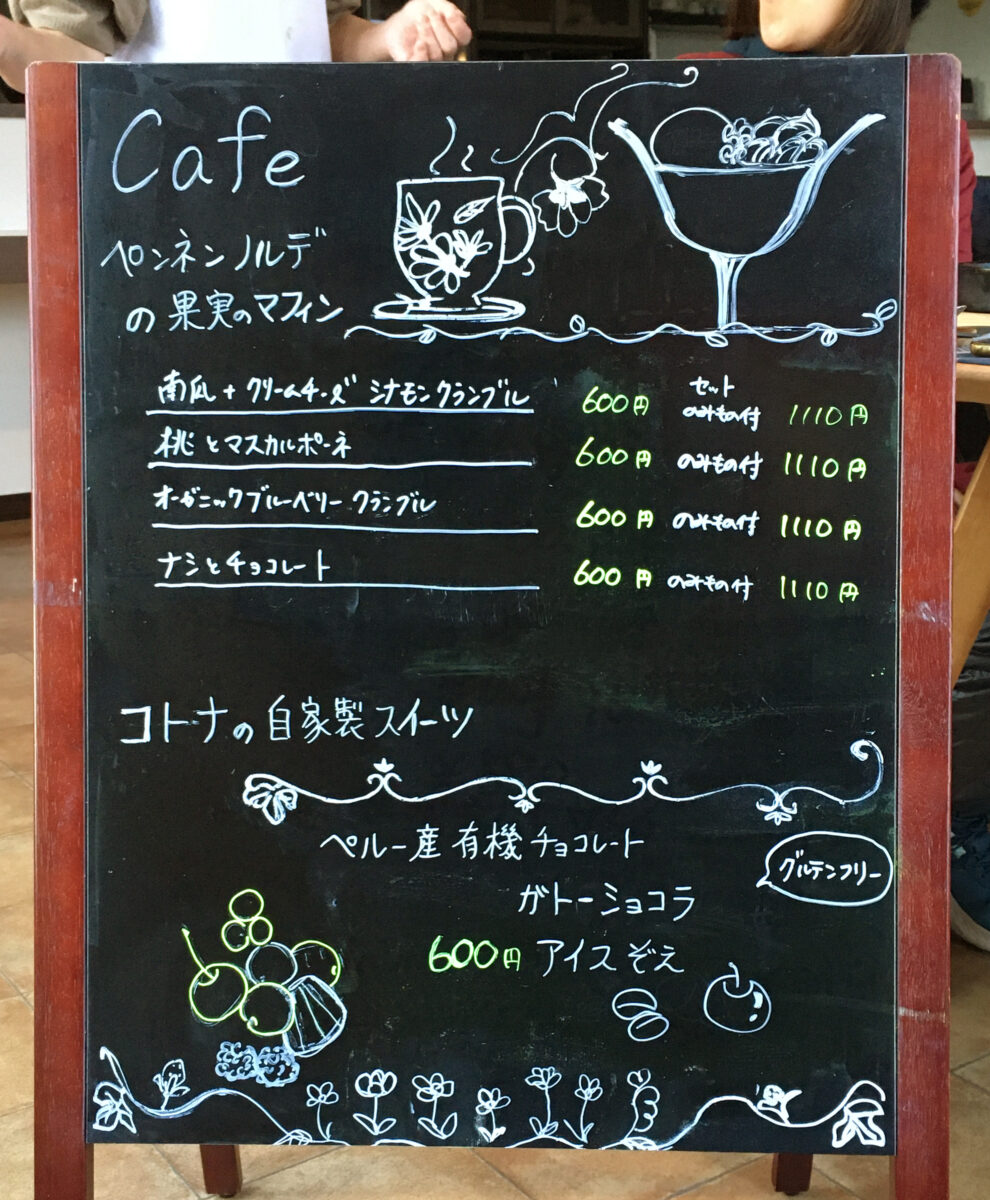 Cafe
ペンネンノルデ
の果実のマフィン
南瓜+クリームチーズ シナモンクランブル 600円 セット のみもの付 1110円
桃とマスカルポーネ 600円 のみもの付 1110円
オーガニックブルーベリー クランブル 600円 のみもの付 1110円
ナシとチョコレート 600円 のみもの付 1110円
コトーナの自家製スイーツ
ペルー産有機チョコレート
グルテンフリー
ガトーショコラ
600円 アイスぞえ